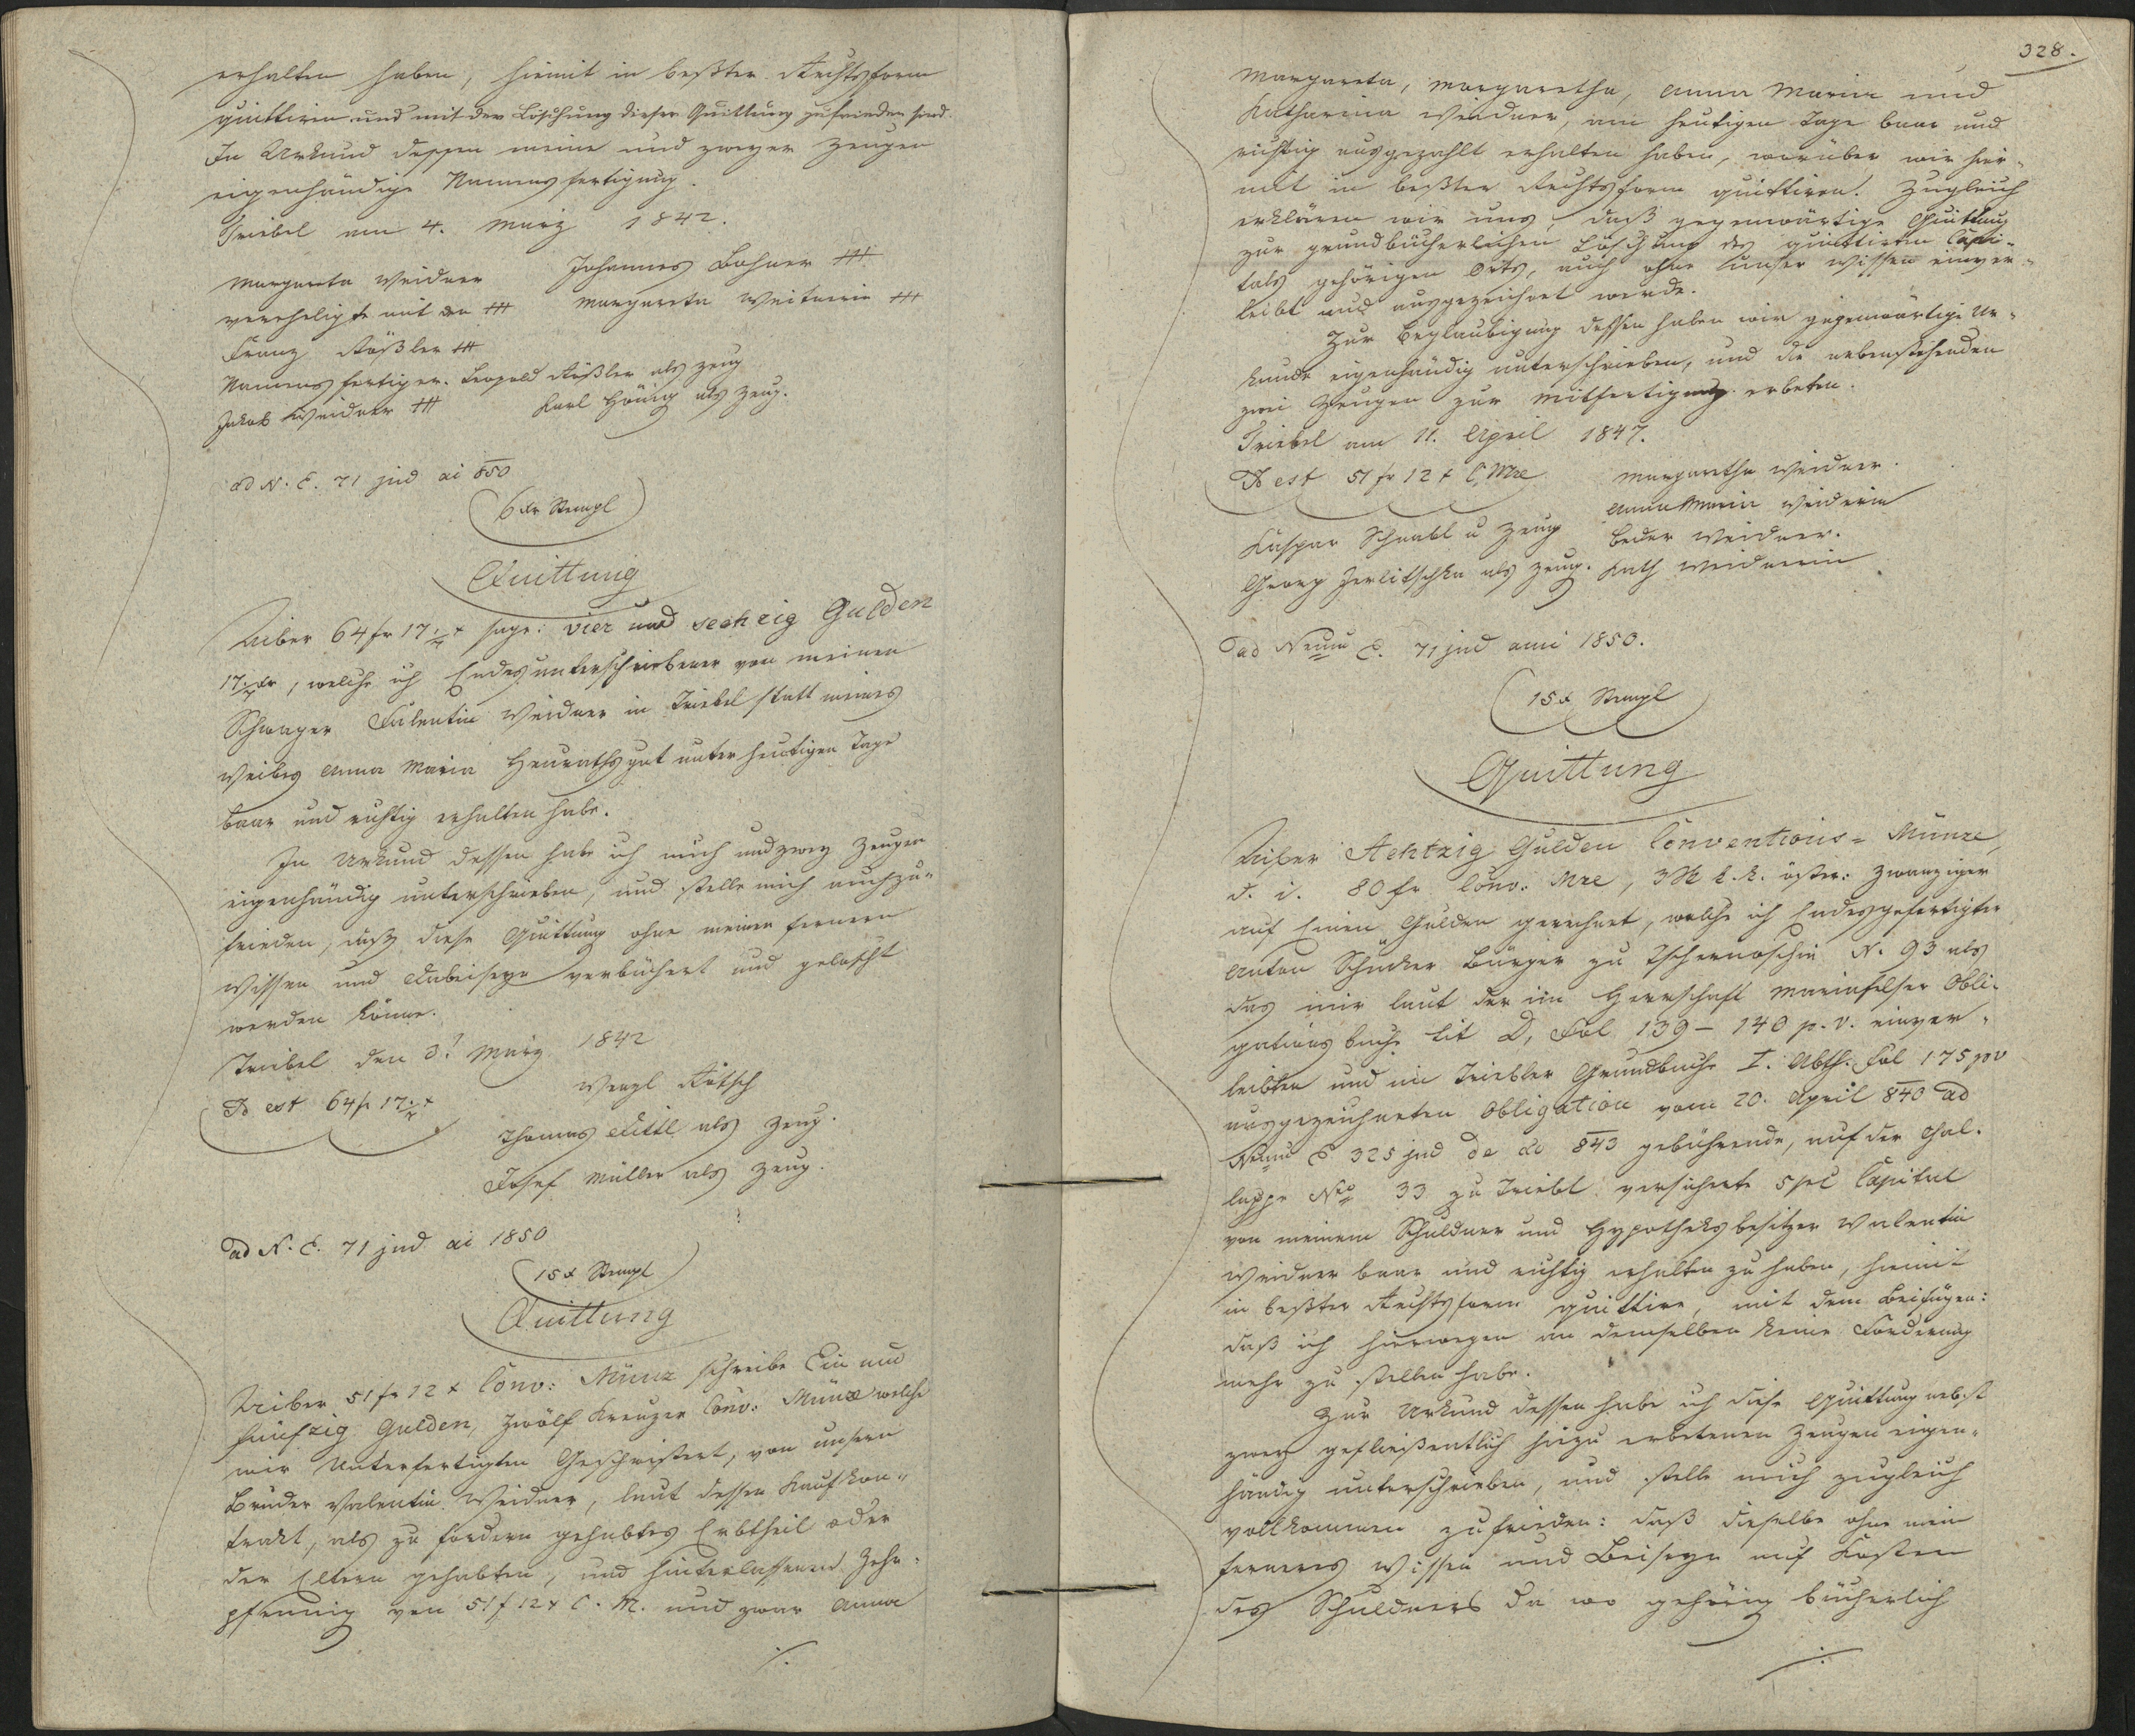 erhalten haben, hiemit in beßter Rechtsform
quittiren und mit der Löschung dieser Quittung zufrieden sind.
In Urkund dessen meine und zweyer Zeugen
eigenhändige Namensfertigung.
Triebel am 4. März 1842.
Margareta Weidner Johannes Bohner +++
vereheligte mit den +++ Margareta +++
Franz Rößler +++
Namensfertiger. Leopold Rößler als Zeug
Jakob Weidner +++ Karl Hönig als Zeug.
ad N. E. 71 jud ai 850
6 xr Stempl
Quittung
Uiber 64 fr 17 x sage: vier und sechzig Gulden
17 xr, welche ich Endesunterschriebener von meinen
Schwager Falentin Weidner in Triebel statt meines
Weibes Anna Maria Heurathsgut unter heutigen Tage
baar und richtig erhalten habe.
In Urkund dessen habe ich mich und zwey Zeugen
eigenhändig unterschrieben, und stelle mich auch zu-
frieden, daß diese Quittung ohne meinen fernern
Wissen und Dabeiseyn verbüchert und gelöscht
werden könne.
Triebel den 3t März 1842
Id est 64 fr 17 x Wenzl Rötsch
Thomas Dittl als Zeug.
Josef Müller als Zeug.
ad N. E. 71 jud ai 1850
15 x Stempl
Quittung
Uiber 51 fr 12 x Conv: Münz schreibe Ein und
fünfzig Gulden, zwölf Kreuzer Conv: Münze welche
wir Unterfertigten Geschwistert, von unsern
Bruder Valentin Weidner, laut dessen Kaufkon-
trakt, als zu fordern gehabtes Erbtheil oder
der Eltern gehabten, und hinterlassenen Zehr-
pfennig von 51 f 12 x C. M. und zwar Anna
./.
328.
Margareta, Margaretha, Anna Maria und
Katharina Weidner, am heutigen Tage baar und
richtig ausgezahlt erhalten haben, worüber wir hie-
mit in beßter Rechtsform quittiren. Zugleich
erklären wir uns, daß gegenwärtige Quittung
zur grundbücherlichen Löschung des quittirten Capi-
tals gehörigen Orts, auch ohne unser Wissen einver-
leibt und ausgezeichnet werde.
Zur Beglaubigung dessen haben wir gegenwärtige Ur-
kunde eigenhändig unterschrieben, und die nebenstehenden
zwei Zeugen zur Mitfertigung erbeten.
Triebel am 11. April 1847.
Id est 51 fr 12 x C. Mze Margaretha Weidner.
Anna Maria Weidnerin
Kaspar Schnabl u Zeug Weidner.
Georg Zerlitschka als Zeug. Kath Weidnerin
ad Num E. 71 jud anni 1850.
15 x Stempl
Quittung
Uiber Achtzig Gulden Conventions-Münze,
d. i. 80 fr Conv: Mze, 3 St k. k. öster: Zwanziger
auf Einen Gulden gerechnet, welche ich Endesgefertigter
Anton Schücker Bürger zu Tschernoschin N. 93 als
das mir laut der im Herrschaft Mariafelser Obli-
gationsbuche Lit D, Fol 139 - 140 p. v. einver-
leibten und im Triebler Grundbuche I. Abth. Fol 175 pv
ausgezeichneten Obligation vom 20. April 840 ad
Num E 325 jud de ao 843 gebührende, auf der Chal-
luppe Nro 33 zu Triebl versicherte 5 pct Capital
von meinem Schuldner und Hypotheksbesitzer Valentin
Weidner baar und richtig erhalten zu haben, hiemit
in beßter Rechtsform quittire, mit dem Beifügen:
daß ich hierwegen an demselben keine Forderung
mehr zu stellen habe.
Zur Urkund dessen habe ich diese Quittung nebst
zwey geflißentlich hiezu erbetenen Zeugen eigen-
händig unterschrieben, und stelle mich zugleich
vollkommen zufrieden: daß dieselbe ohne mein
ferneres Wissen und Beiseyn auf Kosten
des Schuldners da wo gehörig bücherlich
./.